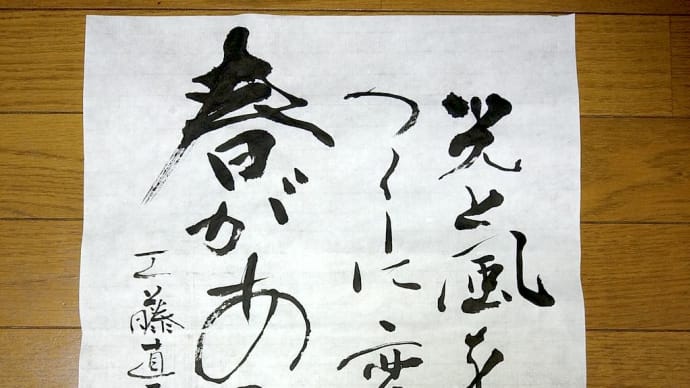 光と風を
つくしに変
春があ
工藤直